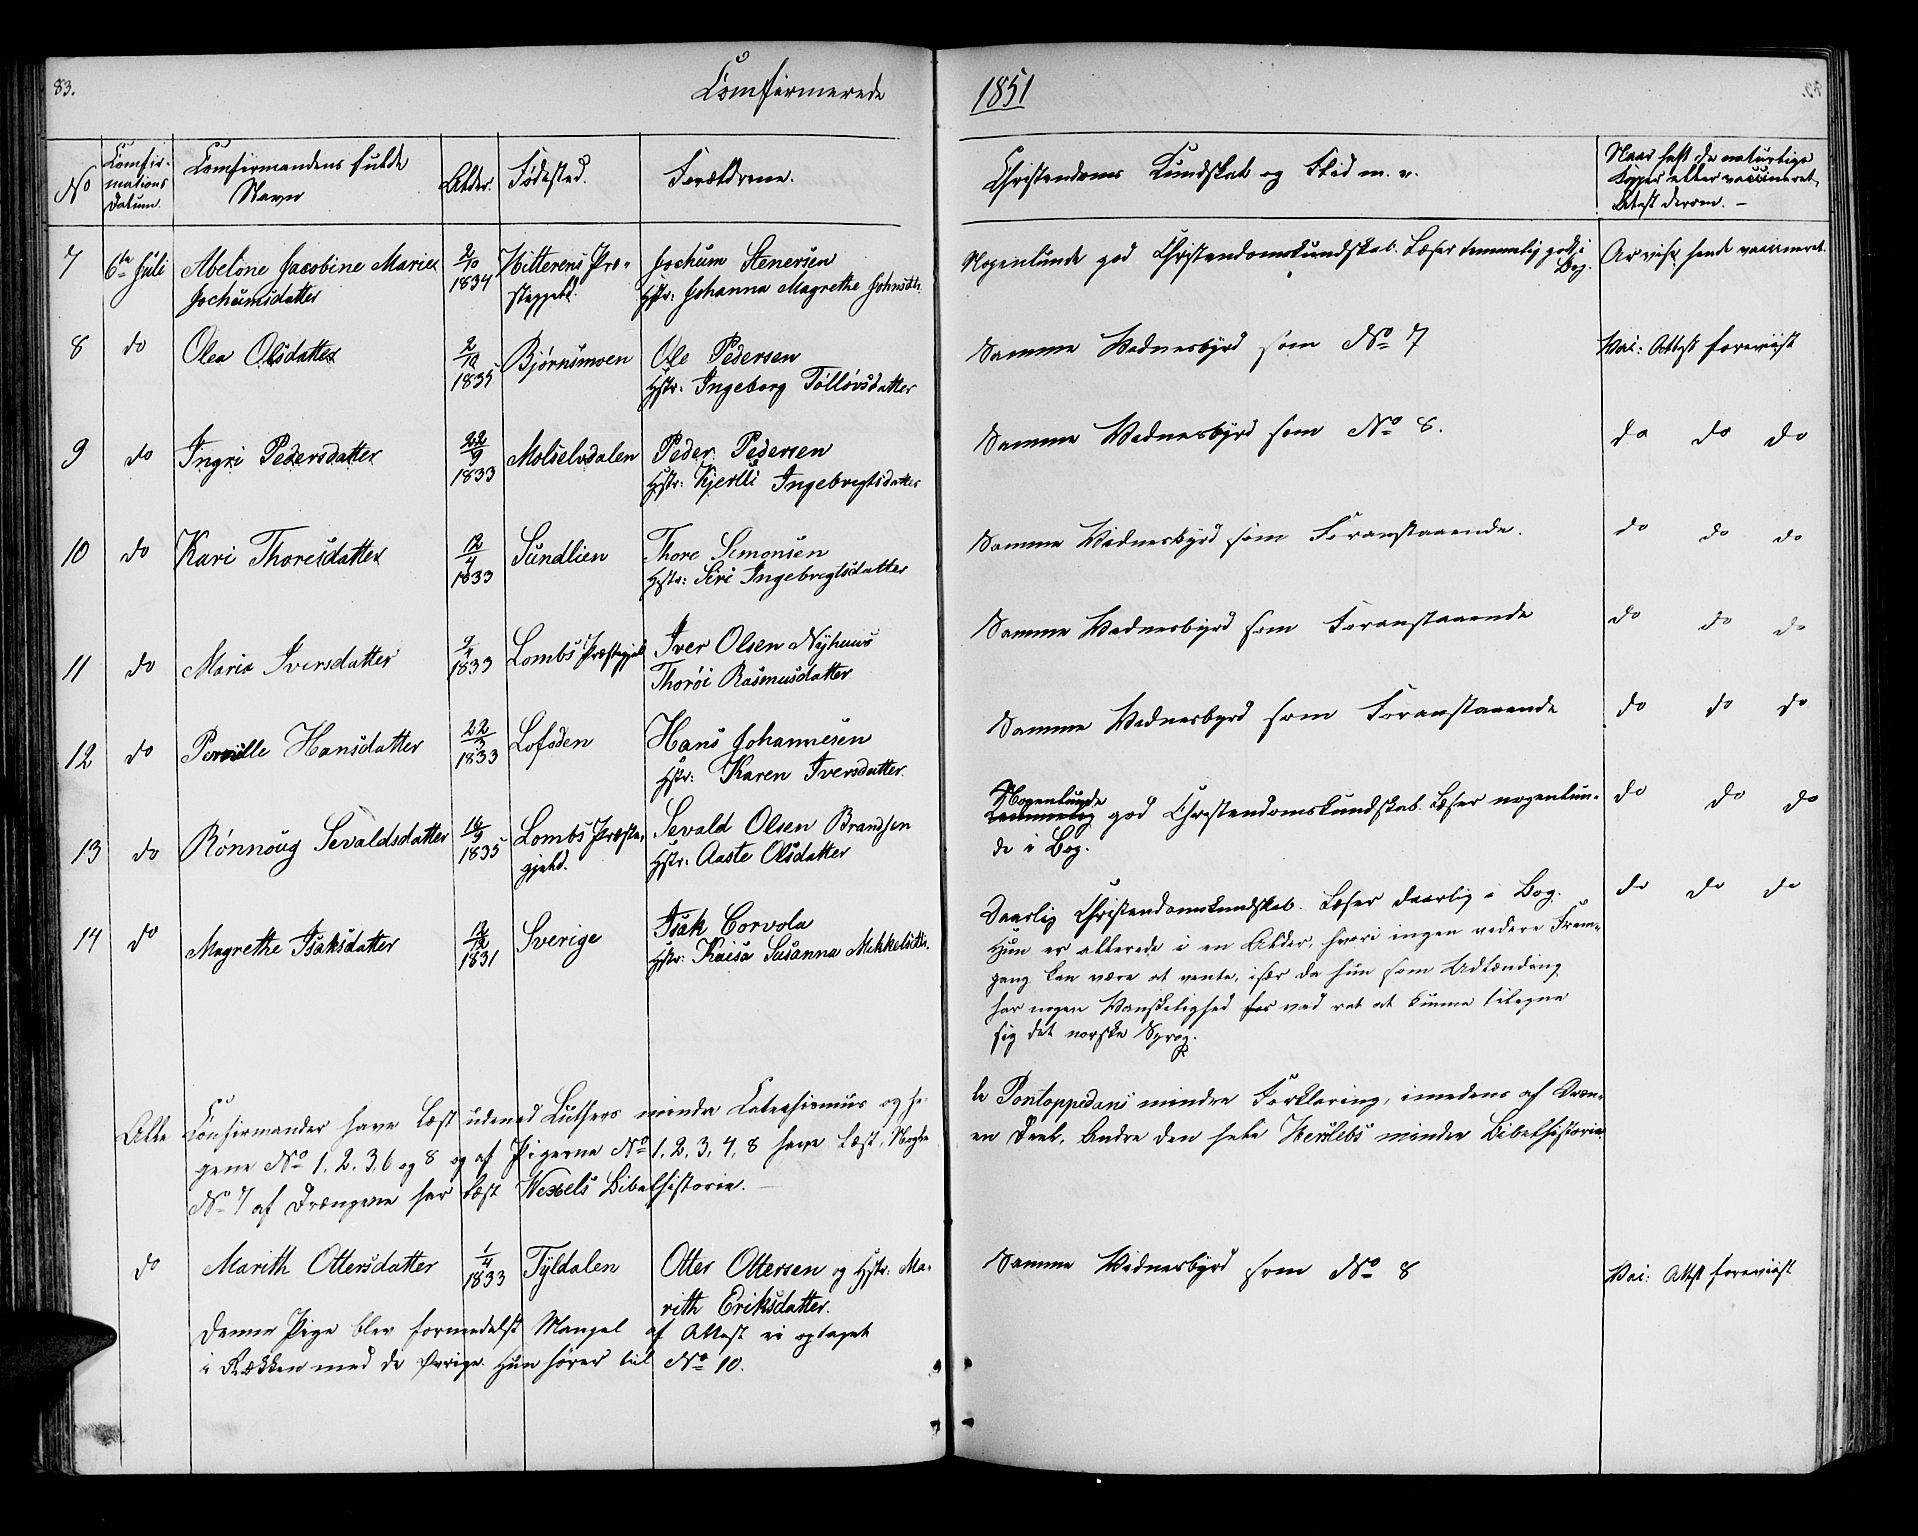 83.
Comfirmerede
1851
No
Comfir-
mations
Datum.
Comfirmandens fulde
Navn
Alder.
Fødested.
Forældrene.
Christendoms Kundskab og Flid m. v.
Naar haft de naturlige
Kopper eller vaccineret,
Attest derom. -
7 6te Juli Abelone Jacobine Marie 2/10 Hitterens Præ- Jochum Stenersen Nogenlunde god Christendomskundskab. Læser temmelig godt i Ar vist. hende vaccineret.
Jochumsdatter 1834 stegjeld. Hstr: Johanna Magrethe Johnsdtr. Bog.
8 do Olea Olsdatter 2/10 1835 Bjørnsmoen Ole Pedersen Samme Vidnesbyrd som No 7 Vac: Attest foreviist
Hstr: Ingeborg Tølløvsdatter
9 do Ingri Pedersdatter 22/9 1833 Molselvdalen Peder Pedersen Samme Vidnesbyrd som No 8. do do do
Hstr: Kjersti Ingebregtsdatter
10 do Kari Thoresdatter 12/4 1833 Sundlien Thore Simonsen Samme Vidnesbyrd som Foranstaaende. do do do
Hstr: Siri Ingebregtsdatter
11 do Maria Iversdatter 9/4 1833 Lombs Præstegjeld Iver Olsen Nyhuus Samme Vidnesbyrd som Foranstaaende do do do
Thorøi Rasmusdatter
12 do Pernille Hansdatter 22/3 1833 Lofoden Hans Johannesen Samme Vidnesbyrd som Foranstaaende do do do
Hstr: Karen Iversdatter.
13 do Rønnoug Sevaldsdatter 16/9 1835 Lombs Præste- Sevald Olsen Brandsen Nogenlunde
Temmelig god Christendomskundskab. Læser nogenlun- do do do
gjeld. Hstr: Aaste Olsdatter de i Bog.
14 do Magrethe Isaksdatter 12/12 1831 Sverige Isak Corvola Daarlig Christendomskundskab. Læser daarlig i Bog. do do do
Hstr: Kaisa Susanna Mekkelsdtr. Hun er allerede i en Alder, hvori ingen videre Frem-
gang kan være at vente, især da hun som Udlænding
har nogen Vanskelighed for ved ret at kunne tilegne
sig det norske Sprog.
Alle Confirmander have læst udenad Luthers mindre Catechismus og he-
le Pontoppidans mindre Forklaring, imedens af Dræn-
gene No 1, 2, 3, 6 og 8 og af Pigerne No 1, 2, 3, 4, 8 have læst, Nogle
en Deel, Andre den hele Herslebs mindre Bibelhistorie.
No 7 af Drængene har læst Wexels Bibelhistorie.
do Marith Ottersdatter 1/4 1833 Tyldalen Otter Ottersen og Hstr: Ma- Samme Vidnesbyrd som No 8 Vac: Attest foreviist
rith Eriksdatter.
Denne Pige blev formedelst Mangel af Attest ei optaget
i Rækken med de øvrige. Hun hører til No 10.